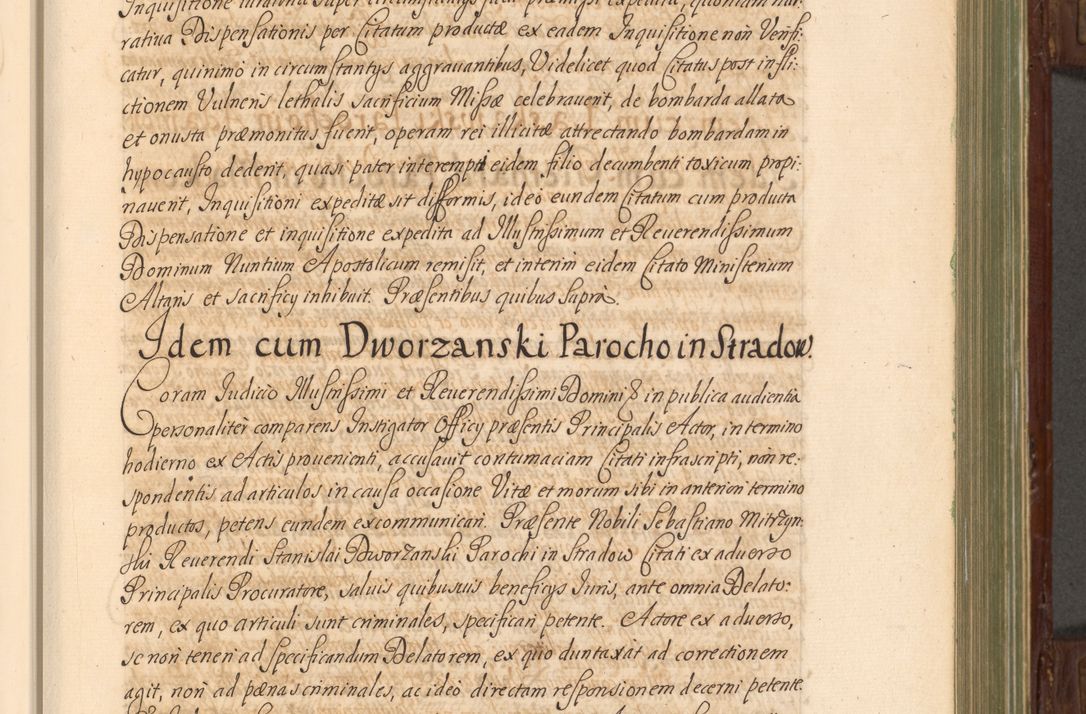 Inquisitione iuratoria super circumstantijs suis præmissis expedita, quoniam nar-
ratiua Dispensationis per Citatum productæ ex eadem Inquisitione non Verifi:
catur, quinimo in circumstantijs aggrauantibus, Videlicet quod Citatus post infli:
ctionem Vulneris lethalis sacrificium Missæ celebrauerit, de bombarda allata
et onusta præmonitus fuerit, operam rei illicitæ attrectando bombardam in
hypocausto dederit, quasi pater interempti eidem filio decumbenti toxicum propi:
nauerit, Inquisitioni expeditæ sit difformis, ideo eundem Citatum cum producta
Dispensatione et inquisitione expedita ad Illustrissimum et Reuerendissimum
Dominum Nuntium Apostolicum remisit, et interim eidem Citato Ministerium
Altaris et sacrificij inhibuit. Præsentibus quibus supra.
Idem cum Dworzanski Parocho in Stradow.
Coram Iudicio Illustrissimi et Reuerendissimi Domini in publica audientia
personaliter comparens Instigator Officij præsentis Principalis Actor, in termino
hodierno ex Actis prouenienti, accusauit contumaciam Citati infrascripti, non re:
spondentis ad articulos in causa occasione Vitæ et morum sibi in anteriori termino
productos, petens eundem excommunicari. Præsente Nobili Sebastiano Mitrzyn:
ski Reuerendi Stanislai Dworzanski Parochi in Stradow Citati ex aduerso
Principalis Procuratore, saluis quibusuis beneficijs Iuris, ante omnia Delato:
rem, ex quo articuli sunt criminales, specificari petente. Actore ex aduerso,
se non teneri ad specificandum Delatorem, ex quo duntaxat ad correctionem
agit, non ad pænas criminales, ac ideo directam responsionem decerni petente.